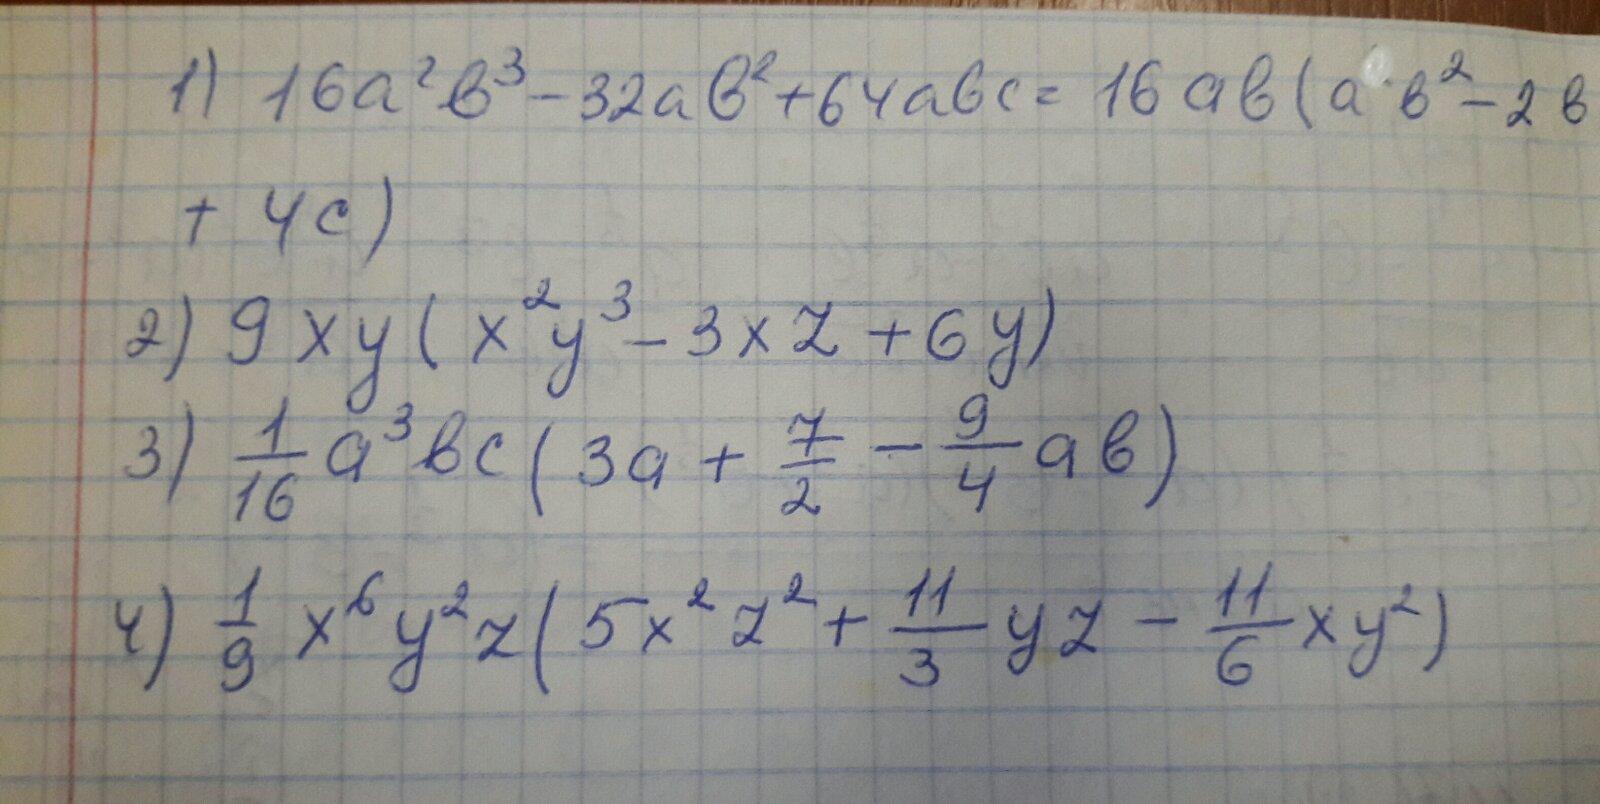 1) 16a²b³ - 32ab² + 64abc = 16ab(a·b² - 2b
+ 4c)
2) 9xy(x²y³ - 3xz + 6y)
3) 1/16 a³bc(3a + 7/2 - 9/4 ab)
4) 1/9 x⁶y²z(5x²z² + 11/3 yz - 11/6 xy²)